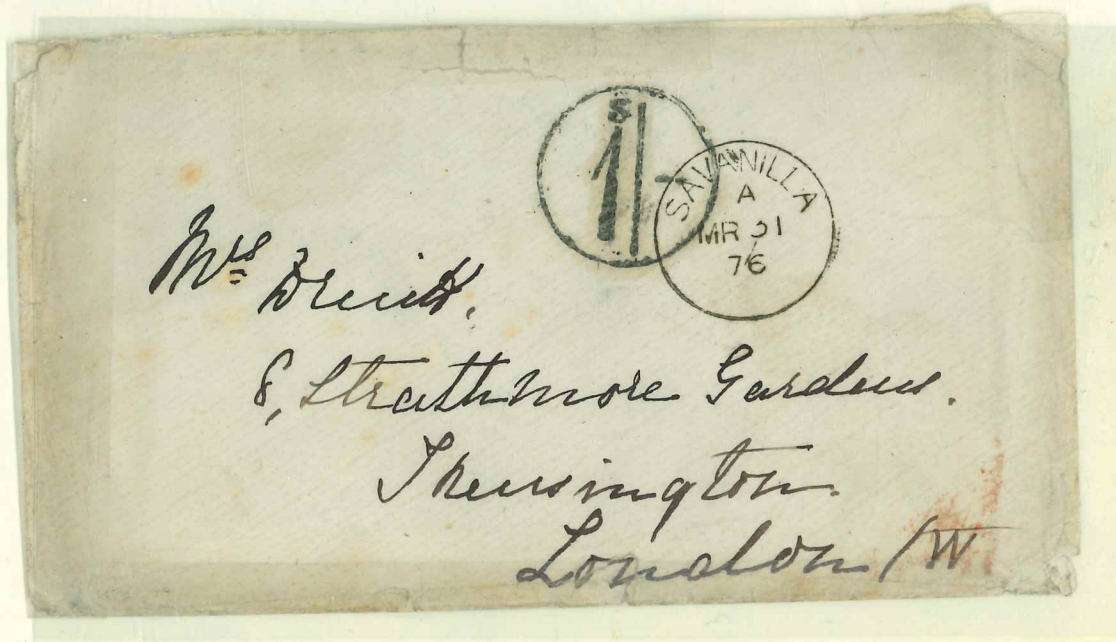 S
1/-
SAVANILLA
A
MR 31
76
Mrs
8, Strathmore Gardens.
Kensington.
London / W